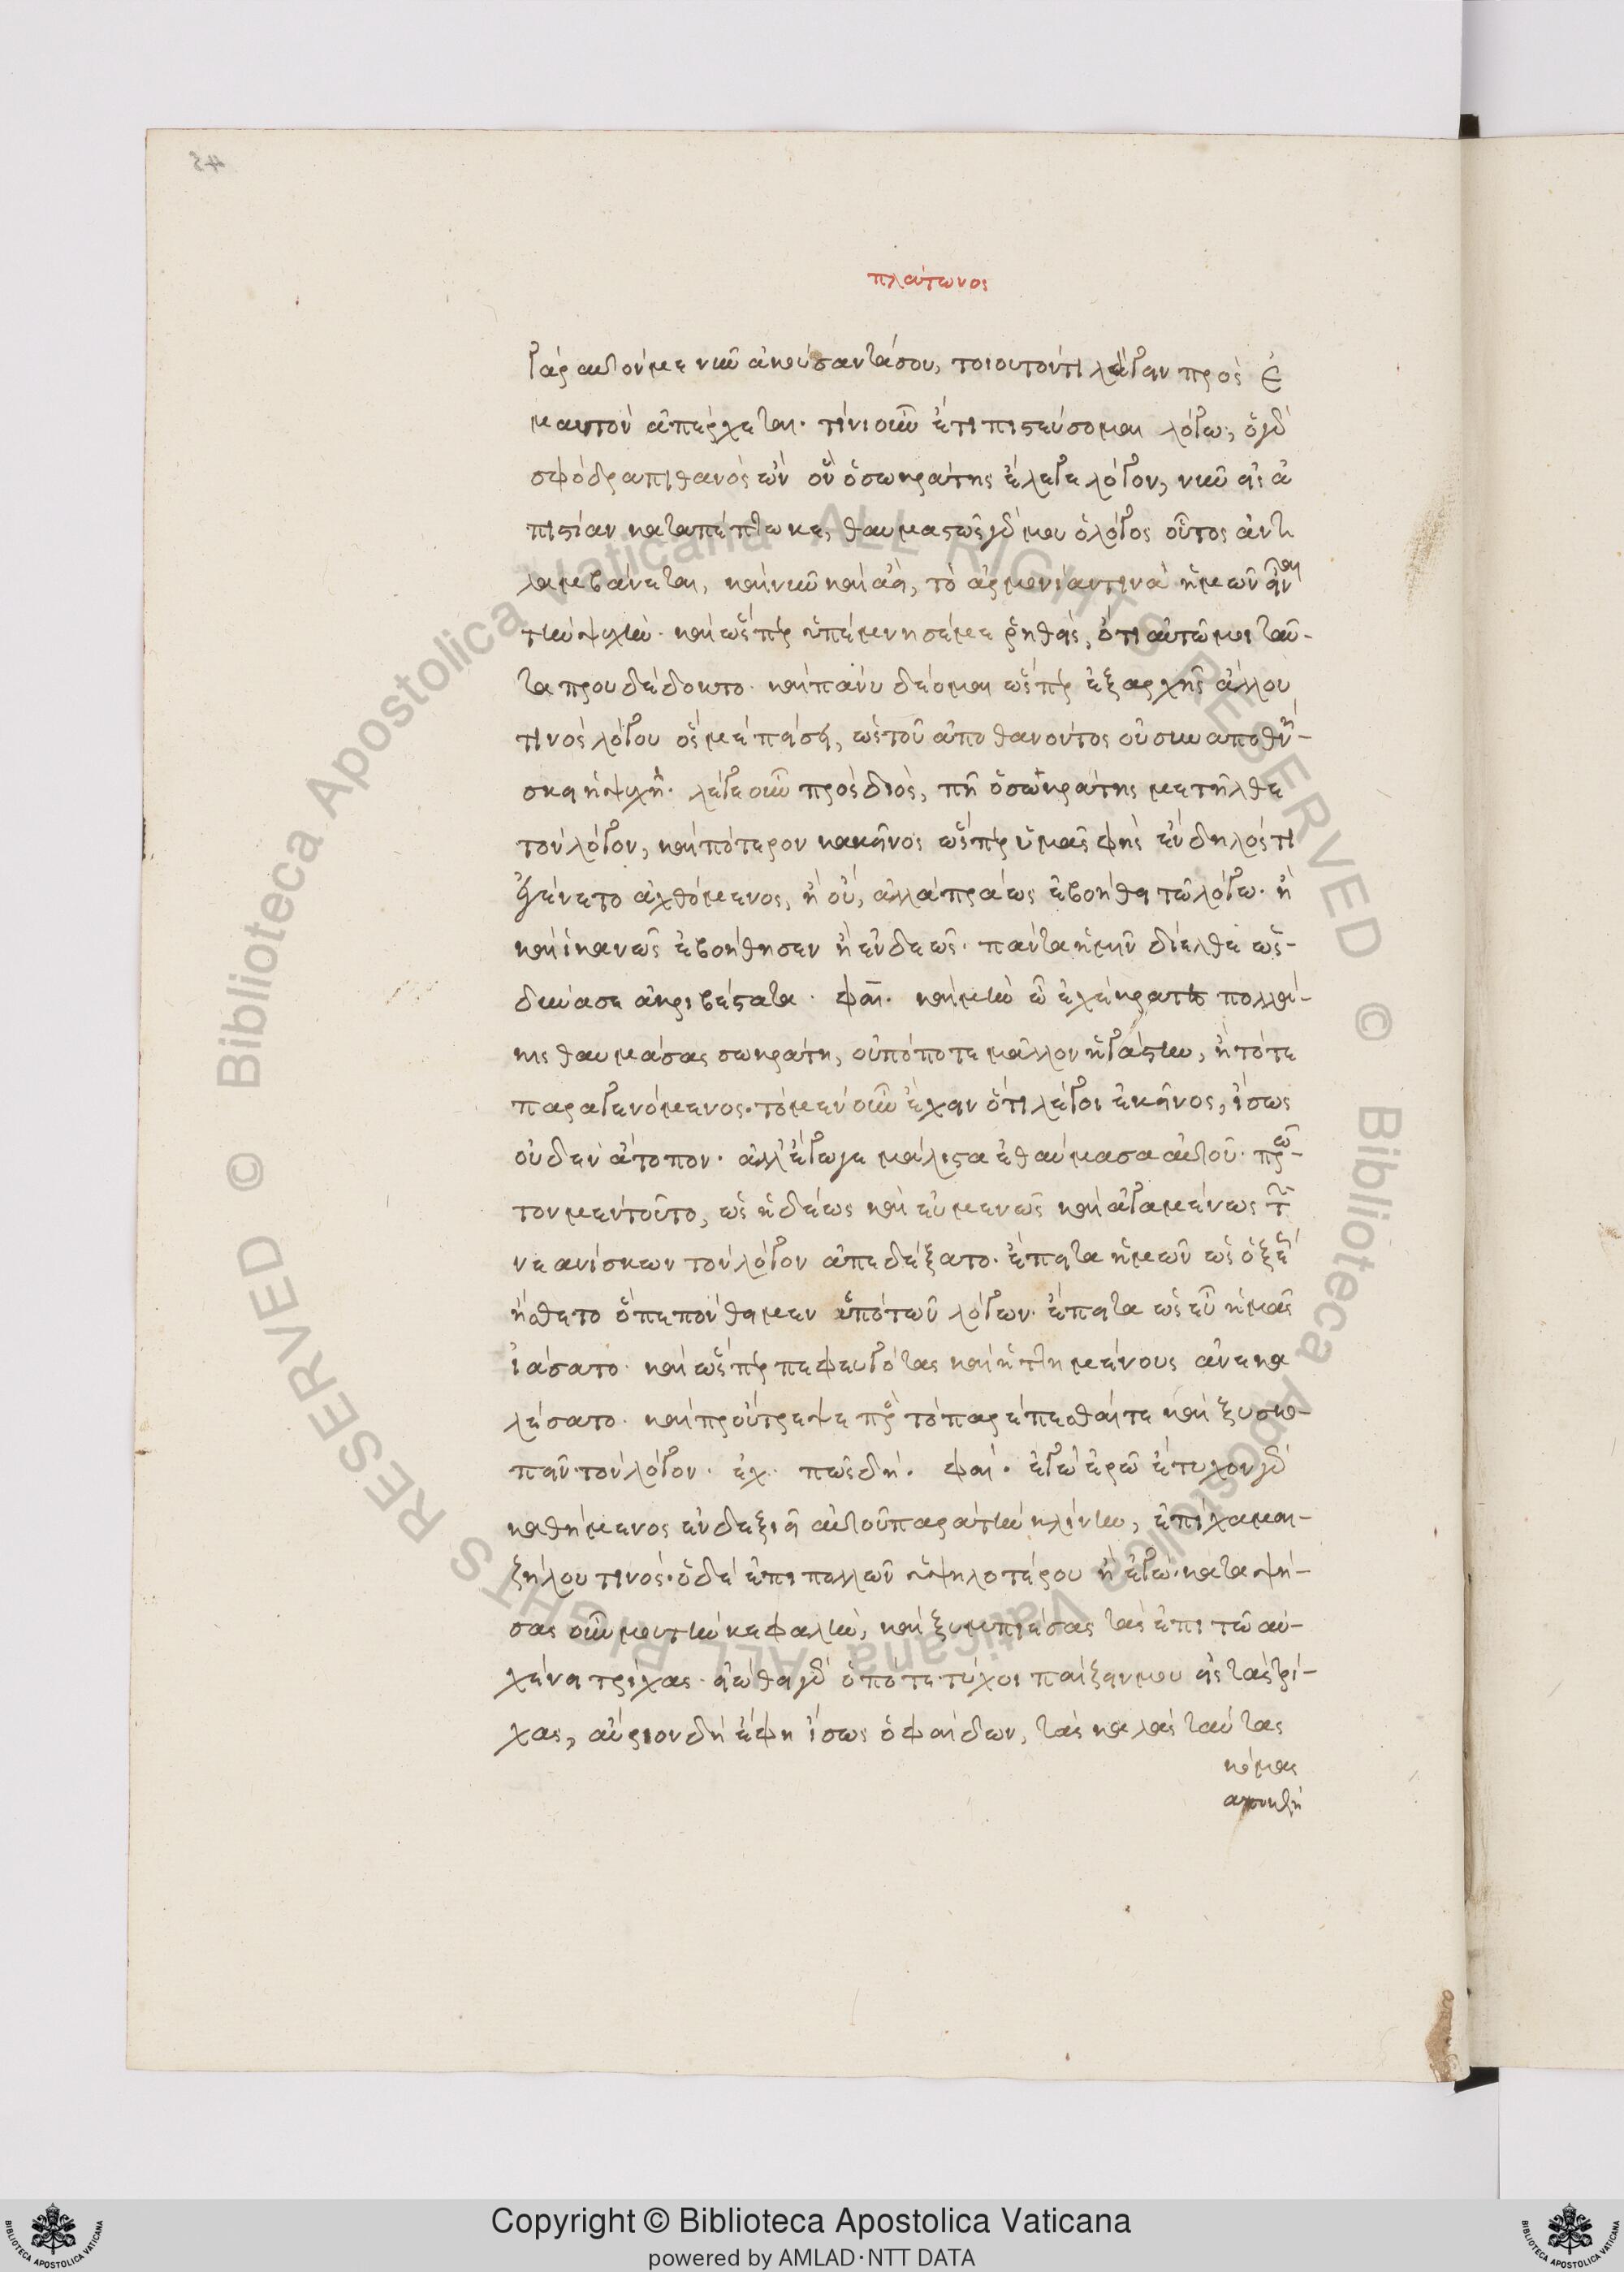 πλάτωνος
γάρ αὐτόν με νῦν ἀκούσαντά σου, τοιουτοντί λέγειν πρὸς ἐ
μαυτὸν ἀπέρχεται. τίνι οὖν ἔτι πιστεύσομεν λόγω, ὁ γὰρ
σφόδρα πιθανὸς ὢν ὃν ὁ σωκράτης ἔλεγε λόγον, νῦν εἰς ἀ
πιστίαν καταπέπτωκε, θαυμαστῶς γάρ μου ὁ λόγος οὗτος ἀντι
λαμβάνεται, καὶ νῦν καὶ ἀεὶ, τὸ ἁρμονίαν τινὰ ἡμῶν εἶναι
τὴν ψυχήν. καὶ ὥσπερ ὑπέμνησέ με ῥηθεὶς, ὅτι αὐτῶ μοι ταῦ-
τα προυδέδοκτο. καὶ πάνυ δέομαι ὥσπερ ἐξ ἀρχῆς ἄλλου
τινὸς λόγου ὅς με πείσει, ὡς τοῦ ἀποθανόντος οὐ συναποθνή-
σκει ἡ ψυχή. λέγε οὖν πρὸς διὸς, πῆ ὁ σωκράτης μετῆλθε
τὸν λόγον, καὶ πότερον κἀκεῖνος ὥσπερ ὑμᾶς φὴς ἔνδηλός τι
ἐγένετο ἀχθόμενος, ἢ οὔ, ἀλλὰ πράως ἐβοήθει τῶ λόγω. ἢ
καὶ ἱκανῶς ἐβοήθησεν ἢ ἐνδεῶς. πάντα ἡμῖν δίελθε ὡς-
δύνασαι ἀκριβέστατα. φαί. καὶ μὴν ὦ ἐχέκρατες πολλά-
κις θαυμάσας σωκράτη, οὐπόποτε μᾶλλον ἠγάσθην, ἢ τότε
παραγενόμενος. τὸ μὲν οὖν ἔχειν ὅτι λέγοι ἐκεῖνος, ἴσως
οὐδὲν ἄτοπον. ἀλλ' ἔγωγε μάλιστα ἐθαύμασα αὐτοῦ. πρῶ-
τον μὲν τοῦτο, ὡς ἡδέως καὶ εὐμενῶς καὶ ἀγαμένως τῶν
νεανίσκων τὸν λόγον ἀπεδέξατο. ἔπειτα ἡμῶν ὡς ὀξέως
ἤσθετο ὃ πεπόνθειμεν ὑπὸ τῶν λόγων. ἔπειτα ὡς εὖ ἡμᾶς
ἰάσατο. καὶ ὥσπερ πεφευγότας καὶ ἡττημένους ἀνεκα
λέσατο. καὶ προύτρεψε πρὸς τὸ παρέπεσθαί τε καὶ ξυσκο-
πεῖν τὸν λόγον. ἐχ. πῶς δή. φαί. ἐγὼ ἐρῶ ἔτυχον γὰρ
καθήμενος ἐν δεξιᾷ αὐτοῦ παρὰ τὴν κλίνην, ἐπὶ χαμαι-
ζήλου τινός. ὁ δὲ ἐπὶ πολλῶν ὑψηλοτέρου ἢ ἐγώ. καταψή-
σας οὖν μου τὴν κεφαλὴν, καὶ ξυμπιέσας τὰς ἐπὶ τῶ αὐ-
χένι τρίχας. εἰώθει γὰρ ὁπότε τύχοι παίζειν μου εἰς τὰς τρί-
χας, αὔριον δὴ ἔφη ἴσως ὁ φαίδων, τὰς καλὰς ταύτας
κόμας
Copyright © Biblioteca Apostolica Vaticana
powered by AMLAD·NTT DATA